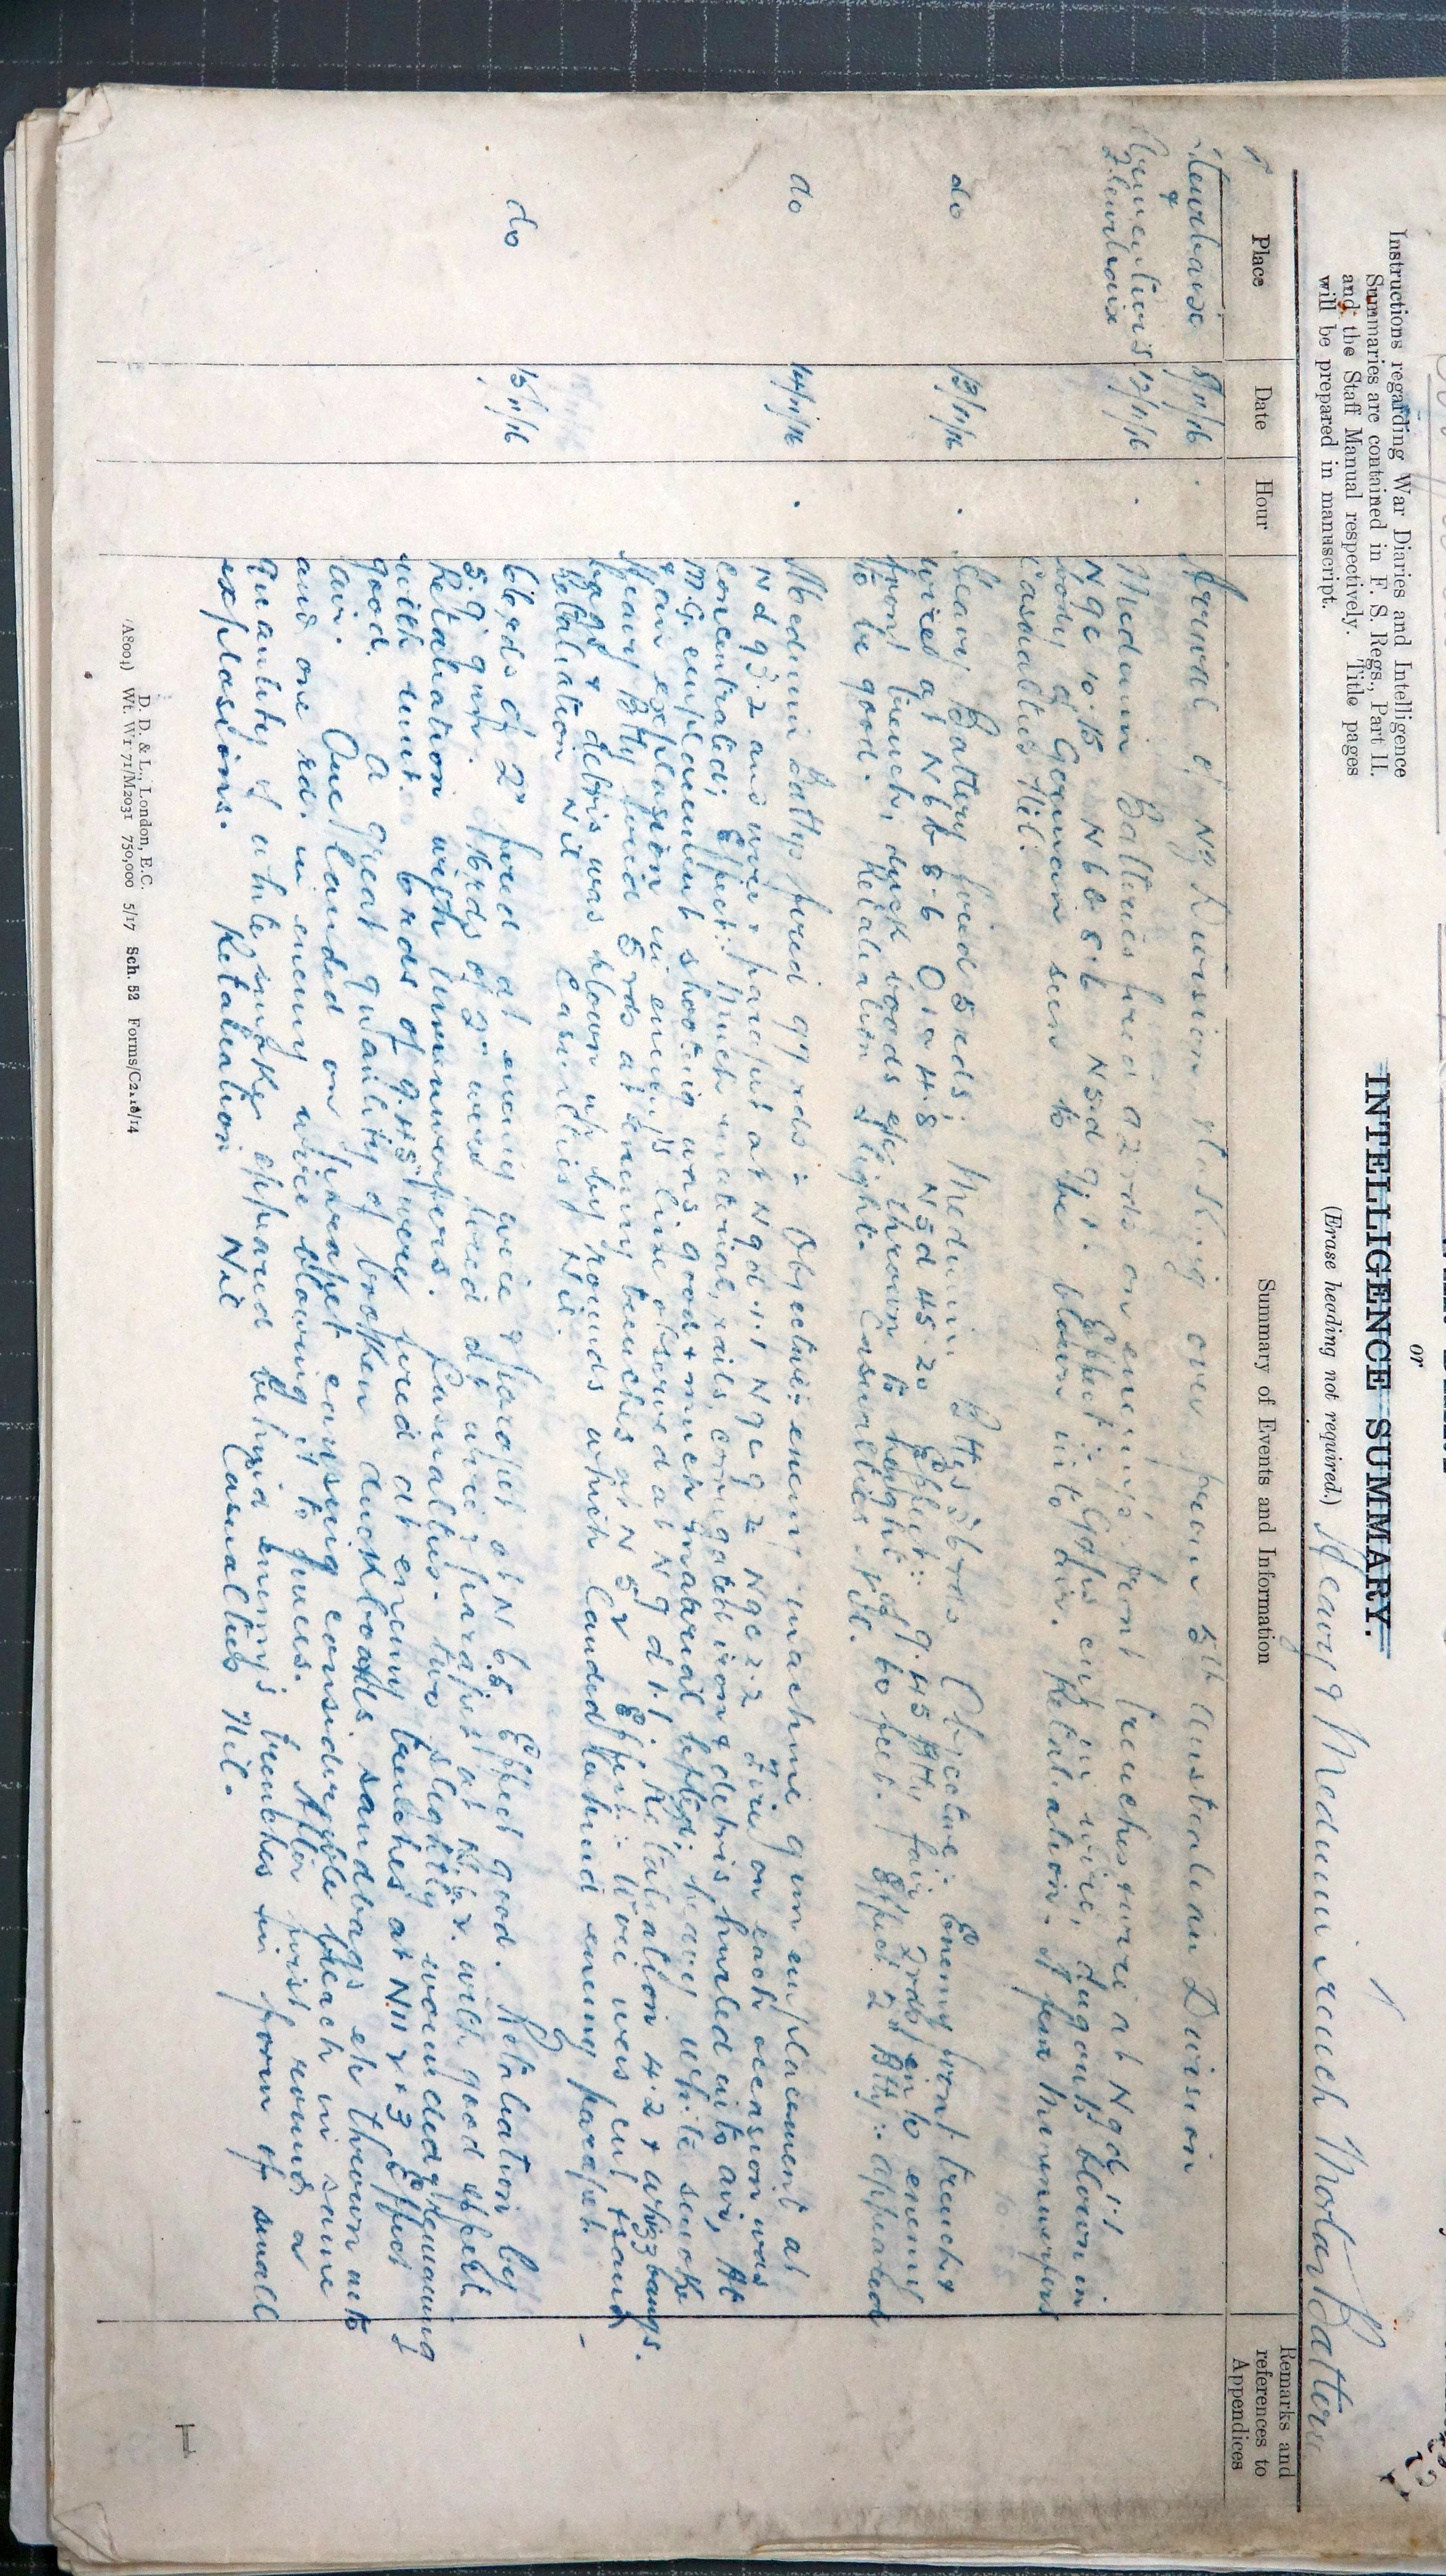 Instructions regarding War Diaries and Intelligence
Summaries are contained in F. S. Regs., Part II.
and the Staff Manual respectively. Title pages
will be prepared in manuscript.
or
INTELLIGENCE SUMMARY.
(Erase heading not required.)
Heavy & Medium Trench Mortar Batteries
Place
Date
Hour
Summary of Events and Information
Remarks and
references to
Appendices
Steenwerck 8/11/16 Arrival of NZ Division taking over from 5th Australian Division
Armentieres 12/11/16 Medium Batteries fired 92 rds on enemy's front trenches & wire at N9d 1.1
& Fleurbaix N9c 10.15 N6b 8.6 N5d 9.1. Effect:- Gaps cut in wire, dugouts blown in
body of German seen to be blown into air. Retaliation. A few Minnenwerfers
Casualties Nil.
do 13/11/16 Heavy Battery fired 5 rds; Medium Bttys 86 rds Objective:- Enemy front trench &
wires at N6b 8.6 O1a 4.8 N5d 45.20 Effect:- 9.45 Btty fair 2 rds in to enemy
front trench, duck boads etc thrown to height of 60 feet. Effect 2" Btty:- appeared
to be good. Retaliation slight. Casualties Nil.
do 14/11/16 Medium Battys fired 97 rds:- Objective:- enemy machine gun emplacement at
N9d 93.2 and wire & parapet at N9d 1.1 N9c 9.2 N9c 2.2 Fire on each occasion was
concentrated; Effect:- Much material, rails, corrugated iron & debris hurled into air, At
M.G. emplacement shooting was good & much material lifted; heavy white smoke
from explosion in enemy's line observed at N9d 1.1 Retaliation 4.2 & whizzbangs.
Heavy Btty fired 5 rds at enemy trenches at N5 Effect:- Wire was cut & sand
bags & debris was blown up by rounds which landed behind enemy parapet.
Retaliation Nil Casualties Nil.
do 15/11/16 66 rds of 2" fired at enemy wire & parapet at N6.8 Effect good. Retaliation by
5.9" gun. 16 rds of 2" were fired at wire & parapet at with good effect
Retaliation with Minnenwerfers. Casualties. two slightly wounded remaining
with unit. 6 rds of 9.45" were fired at enemy trenches at N11 2 & 3 Effect
good. A great quantity of broken duckboards sandbags etc thrown into
air. One landed on parapet causing considerable breach in same
and one rd. in enemy wire blowing it to pieces. After first round a
quantity of white smoke appeared behind enemy's trenches in form of small
explosions. Retaliation Nil Casualties Nil.
D. D. & L., London, E.C.
(A8004) Wt. W1771/M2031 750,000 5/17 Sch. 52 Forms/C2118/14